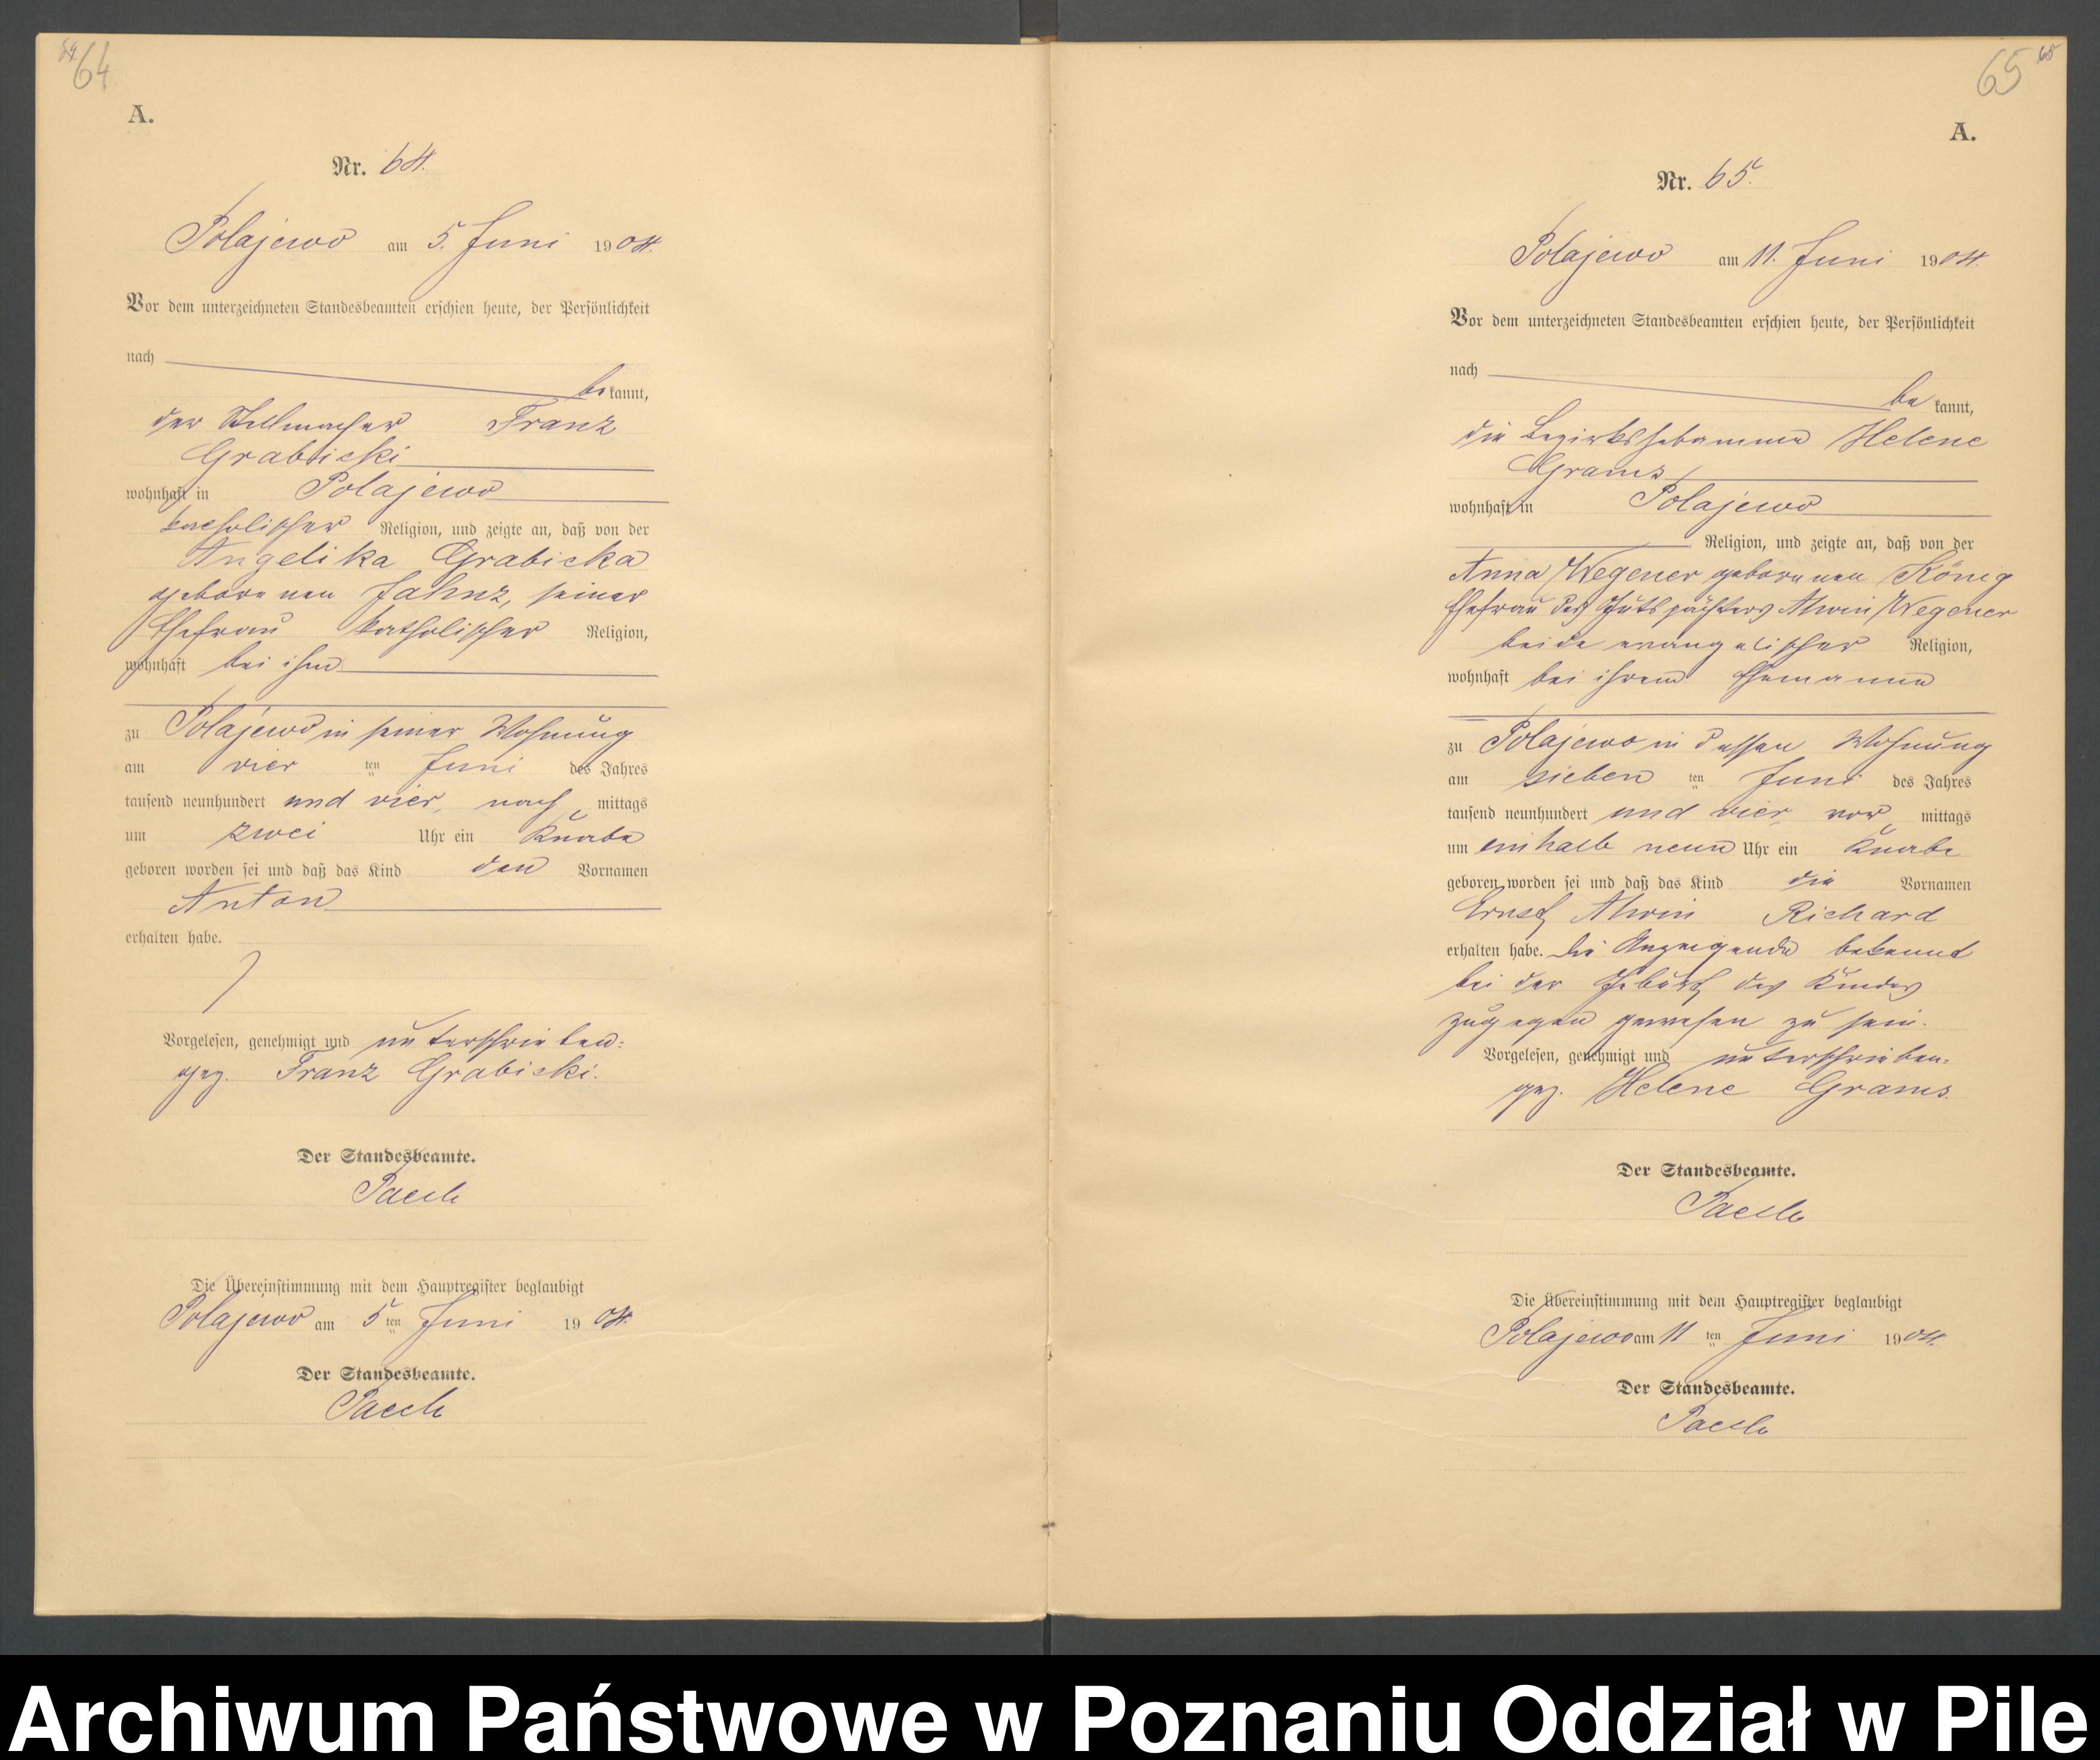 64
A.
Nr. 64.
Polajewo am 5. Juni 1904.
Vor dem unterzeichneten Standesbeamten erschien heute, der Persönlichkeit
nach
bekannt,
der Stellmacher Franz
Grabicki
wohnhaft in Polajewo
katholischer Religion, und zeigte an, daß von der
Angelika Grabicka
geborenen Jahnz, seiner
Ehefrau katholischer Religion,
wohnhaft bei ihm
zu Polajewo in seiner Wohnung
am vier ten Juni des Jahres
tausend neunhundert und vier, nach mittags
um zwei Uhr ein Knabe
geboren worden sei und daß das Kind den Vornamen
Anton
erhalten habe.
Vorgelesen, genehmigt und unterschrieben:
gez. Franz Grabicki.
Der Standesbeamte.
Die Übereinstimmung mit dem Hauptregister beglaubigt
Polajewo am 5 ten Juni 1904.
Der Standesbeamte.
65
A.
Nr. 65.
Polajewo am 11. Juni 1904.
Vor dem unterzeichneten Standesbeamten erschien heute, der Persönlichkeit
nach
be kannt,
die Bezirkshebamme Helene
Grams
wohnhaft in Polajewo
Religion, und zeigte an, daß von der
Anna Wegener geborenen König
Ehefrau des Gutspächters Alwin Wegener
beide evangelischer Religion,
wohnhaft bei ihrem Ehemanne
zu Polajewo in dessen Wohnung
am sieben ten Juni des Jahres
tausend neunhundert und vier vor mittags
um einhalb neun Uhr ein Knabe
geboren worden sei und daß das Kind die Vornamen
Ernst Alwin Richard
erhalten habe. Die Anzeigende bekennt
bei der Geburt des Kindes
zugegen gewesen zu sein.
Vorgelesen, genehmigt und unterschrieben:
gez. Helene Grams.
Der Standesbeamte.
Die Übereinstimmung mit dem Hauptregister beglaubigt
Polajewo am 11 ten Juni 1904.
Der Standesbeamte.
Archiwum Państwowe w Poznaniu Oddział w Pile